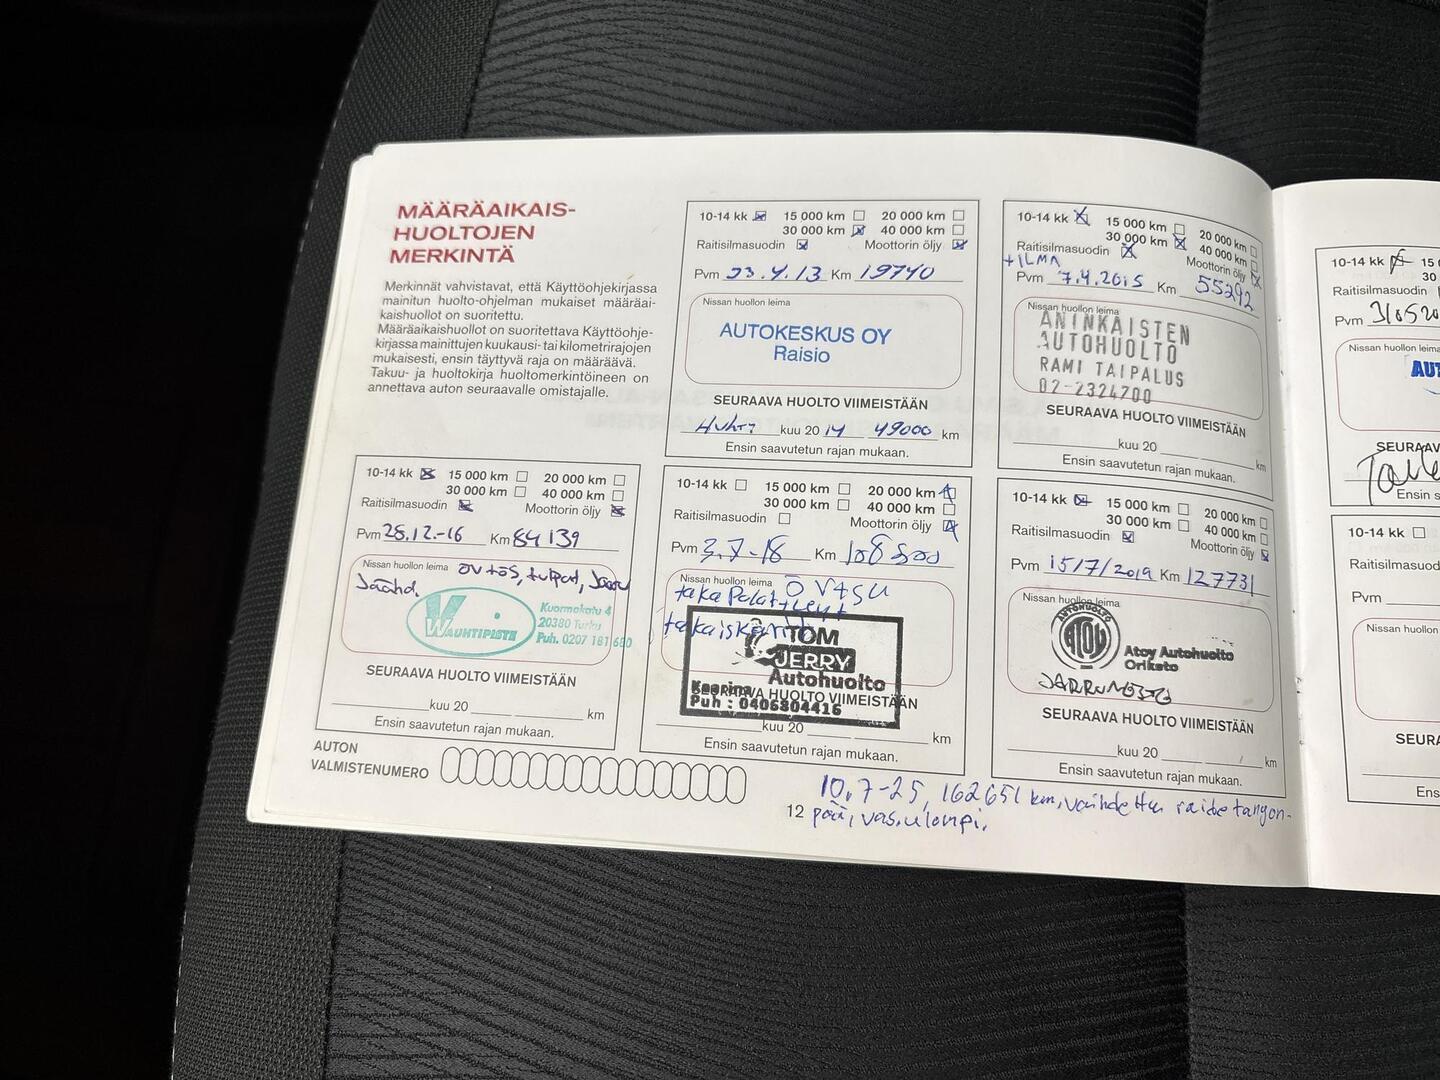 MÄÄRÄAIKAIS-
HUOLTOJEN
MERKINTÄ
Merkinnät vahvistavat, että Käyttöohjekirjassa
mainitun huolto-ohjelman mukaiset määräai-
kaishuollot on suoritettu.
Määräaikaishuollot on suoritettava Käyttöohje-
kirjassa mainittujen kuukausi- tai kilometrirajojen
mukaisesti, ensin täyttyvä raja on määräävä.
Takuu- ja huoltokirja huoltomerkintöineen on
annettava auton seuraavalle omistajalle.
10-14 kk 15 000 km 20 000 km
30 000 km 40 000 km
Raitisilmasuodin Moottorin öljy
Pvm 23.4.13 Km 19740
Nissan huollon leima
AUTOKESKUS OY
Raisio
SEURAAVA HUOLTO VIIMEISTÄÄN
Huhti kuu 20 14 49000 km
Ensin saavutetun rajan mukaan.
10-14 kk 15 000 km 20 000 km
30 000 km 40 000 km
Raitisilmasuodin Moottorin öljy
+ ILMA
Pvm 7.4.2015 Km 55292
Nissan huollon leima
ANINKAISTEN
AUTOHUOLTO
RAMI TAIPALUS
02-2324700
SEURAAVA HUOLTO VIIMEISTÄÄN
kuu 20 km
Ensin saavutetun rajan mukaan.
10-14 kk 15 000 km 20 000 km
30 000 km 40 000 km
Raitisilmasuodin Moottorin öljy
Pvm 28.12.-16 Km 84139
Nissan huollon leima
tulpat,
Jäähd.
VAUHTIPISTE
Kuormakatu 4
20380 Turku
Puh. 0207 181 680
SEURAAVA HUOLTO VIIMEISTÄÄN
kuu 20 km
Ensin saavutetun rajan mukaan.
10-14 kk 15 000 km 20 000 km
30 000 km 40 000 km
Raitisilmasuodin Moottorin öljy
Pvm 3.7-18 Km
Nissan huollon leima
taka Palat
TOM
JERRY
Autohuolto
Kaarina
Puh : 0406304416
SEURAAVA HUOLTO VIIMEISTÄÄN
kuu 20 km
Ensin saavutetun rajan mukaan.
10-14 kk 15 000 km 20 000 km
30 000 km 40 000 km
Raitisilmasuodin Moottorin öljy
Pvm 15/7/2019 Km 127731
Nissan huollon leima
AUTOHUOLTO
ATOY
Atoy Autohuolto
Oriketo
SEURAAVA HUOLTO VIIMEISTÄÄN
kuu 20 km
Ensin saavutetun rajan mukaan.
AUTON
VALMISTENUMERO
10.7-25, 162651 km, vaihdettu raidetangon-
12 pää, vas. ulompi.
10-14 kk
30
Raitisilmasuodin
Pvm
Nissan huollon leima
AUT
SEURAAV
Ensin s
10-14 kk 15
30
Raitisilmasuod
Pvm
Nissan huollon
SEURA
Ens